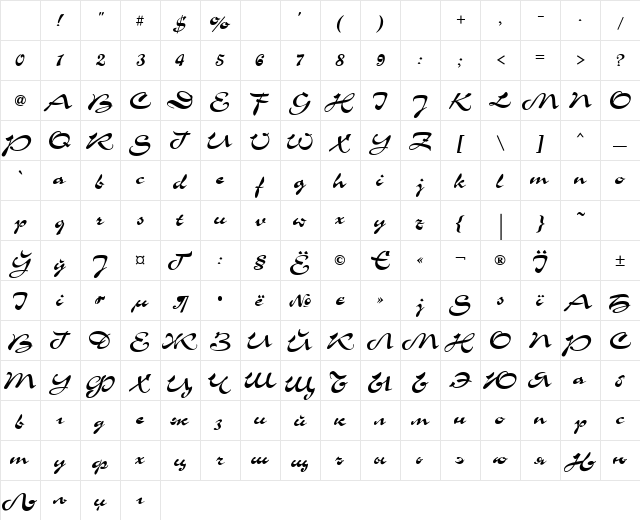 ! " # $ % ' ( ) + , - . /
0 1 2 3 4 5 6 7 8 9 : ; < = > ?
@ A B C D E F G H I J K L M N O
P Q R S T U V W X Y Z [ \ ] ^ _
` a b c d e f g h i j k l m n o
p q r s t u v w x y z { | } ~
Ў ў Ј ¤ Г : § Ё © Є « ¬ ® Ї ±
І і г µ ¶ • ё № е » ј Ѕ ѕ ї А Б
В Г Д Е Ж З И Й К Л М Н О П Р С
Т У Ф Х Ц Ч Ш Щ Ъ Ы Ь Э Ю Я а б
в г д е ж з и й к л м н о п р с
т у ф х ц ч ш щ ъ ы ь э ю я Њ њ
Љ љ џ ı